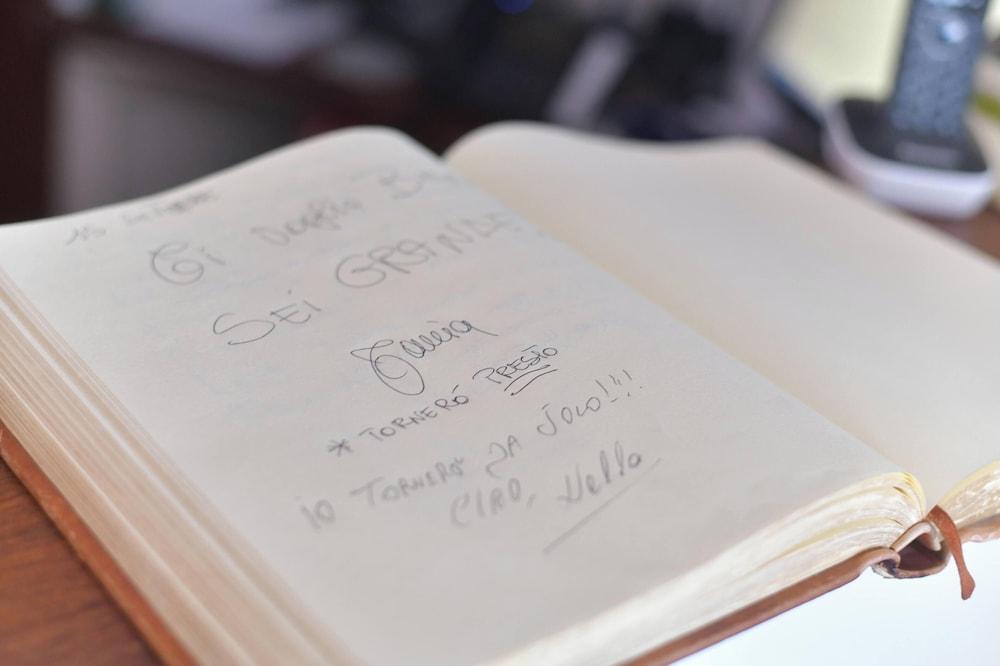 15
SEI GRANDE
Tania
* TORNERÓ PRESTO
IO TORNERÓ DA JOLO!!!
CIAO, Nella